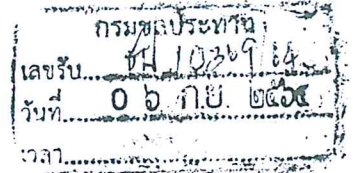 กรมชลประทาน
เลขรับ
วันที่ 0 ๖ ก.ย. ๒๕๖๔
เวลา